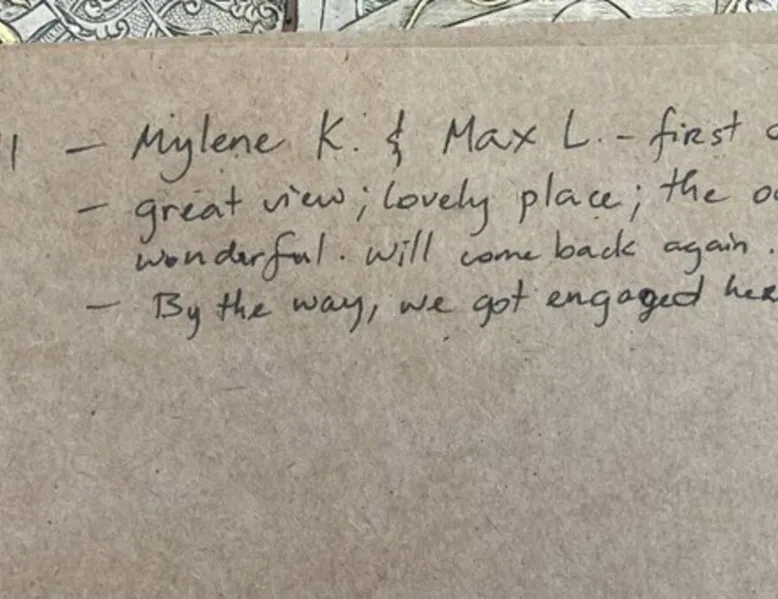 1 – Mylene K. & Max L. – first
– great view; lovely place; the
wonderful. will come back again.
– By the way, we got engaged